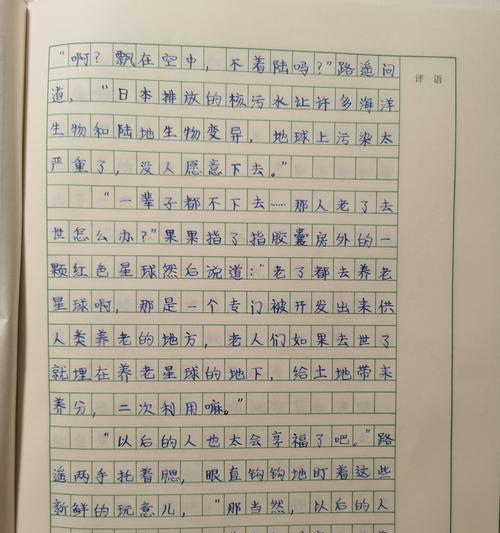 “啊？飘在空中，不着陆吗？”路遥问
评语
道，“日本排放的核污水让许多海洋
生物和陆地生物变异，地球上污染太
严重了，没人愿意下去。”
“一辈子都不下去……那人老了去
世怎么办？”果果指了指胶囊房外的一
颗红色星球然后说道：“老了都去养老
星球啊，那是一个专门被开发出来供
人类养老的地方，老人们如果去世了
就埋在养老星球的地下，给土地带来
养分，二次利用嘛。”
“以后的人也太会享福了吧。”路
遥两手托着腮，眼直钩钩地盯着这些
新鲜的玩意儿，“那当然，以后的人